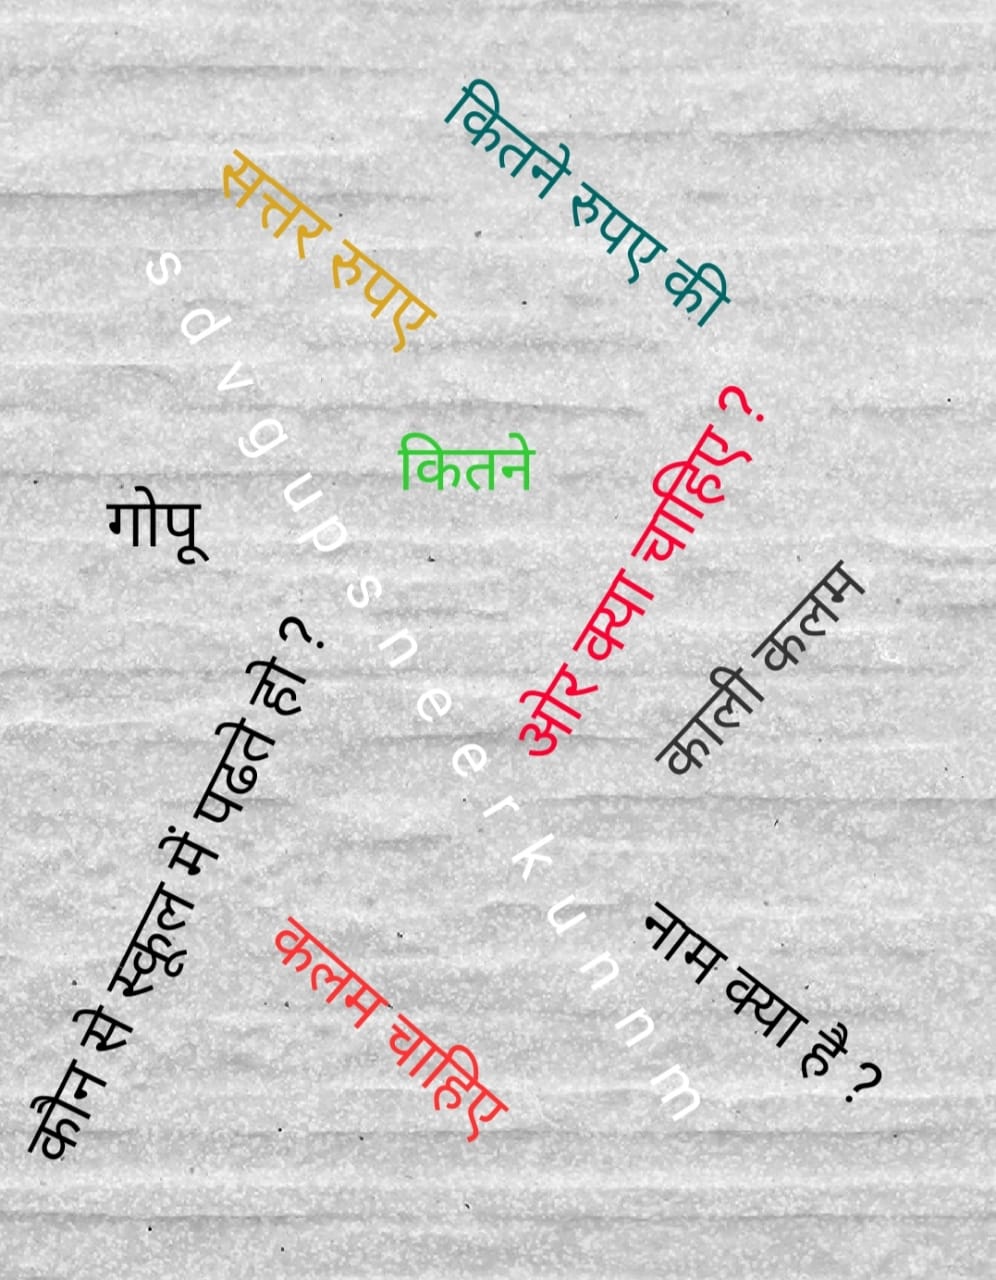 कितने रुपए की
सत्तर रुपए
s d v g u p s n e e r k u n n m
कितने
ओर क्या चाहिए ?
गोपू
काली कलम
कौन से स्कूल में पढते हो ?
नाम क्या है ?
कलम चाहिए